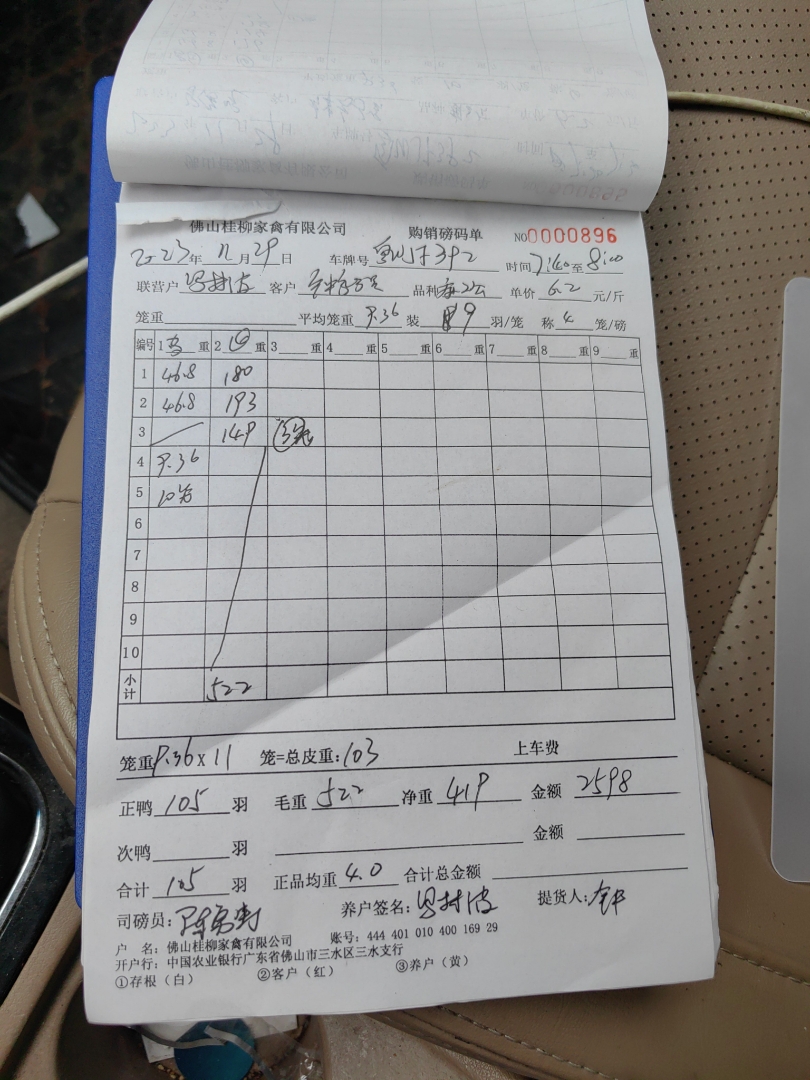 佛山桂柳家禽有限公司 购销磅码单 NO0000896
2023年 11月29日 车牌号 392 时间7:40至8:00
联营户 客户 品种 单价 6.2 元/斤
笼重 平均笼重 9.36 装 9 羽/笼 称 4 笼/磅
编号 1 重 2 重 3 重 4 重 5 重 6 重 7 重 8 重 9 重
1 46.8 180
2 46.8 193
3 149
4 9.36
5
6
7
8
9
10
小计 522
笼重9.36x11 笼=总皮重:103 上车费
正鸭 105 羽 毛重 522 净重 419 金额 2598
次鸭 羽 金额
合计 105 羽 正品均重 4.0 合计总金额
司磅员: 养户签名: 提货人:
户 名:佛山桂柳家禽有限公司 账号:444 401 010 400 169 29
开户行:中国农业银行广东省佛山市三水区三水支行
①存根(白) ②客户(红) ③养户(黄)